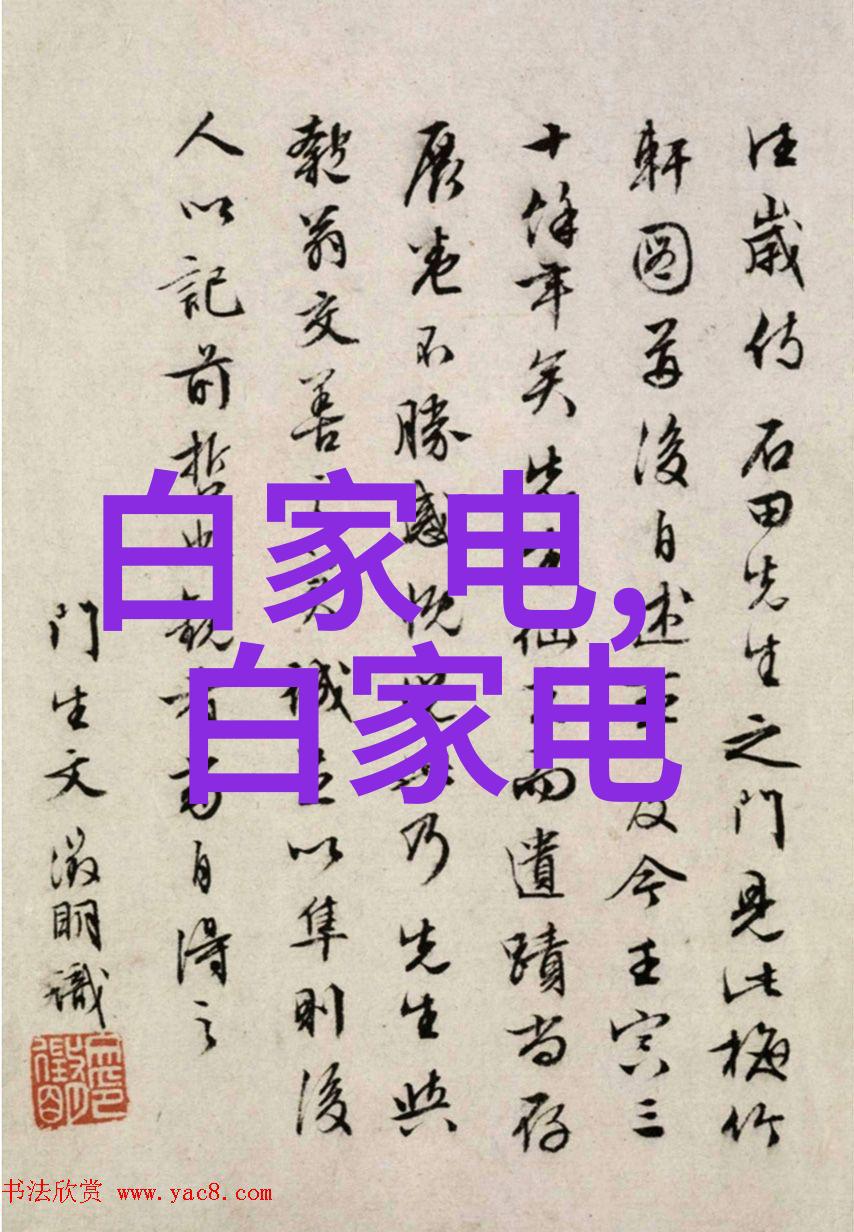 往歲侍 石田先生之門見此梅竹
軒圖後自述及今壬寅三
十餘年矣先仙而遺蹟尚存
展卷不勝感慨乃先生與
翁交善誠以準則後
人以記前哲觀者當自得之
門生文徵明識
白家电,
白家电
书法欣赏 www.yac8.com